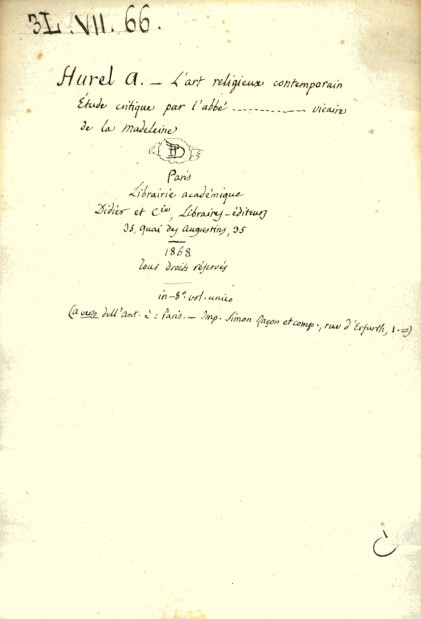 3L.VII.66.
Hurel A. — L'art religieux contemporain
Étude critique par l'abbé ............ vicaire
de la Madeleine
Paris
Librairie académique
Didier et Cie, Libraires-éditeurs
35, Quai des Augustins, 35
1868
Tous droits réservés
in-8° vol. unico
(a verso dell'Ant. è: Paris. — Imp. Simon Raçon et comp., rue d'Erfurth, 1.=)